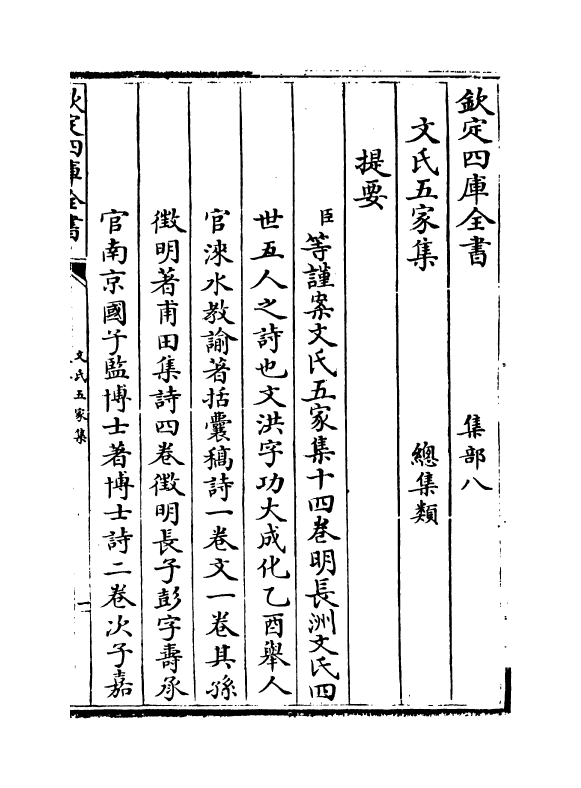 欽定四庫全書 集部八
文氏五家集 總集類
提要
臣等謹案文氏五家集十四卷明長洲文氏四
世五人之詩也文洪字功大成化乙酉舉人
官淶水教諭著括囊稿詩一卷文一卷其孫
徴明著甫田集詩四卷徴明長子彭字壽承
官南京國子監博士著博士詩二卷次子嘉
欽定四庫全書
文氏五家集
一